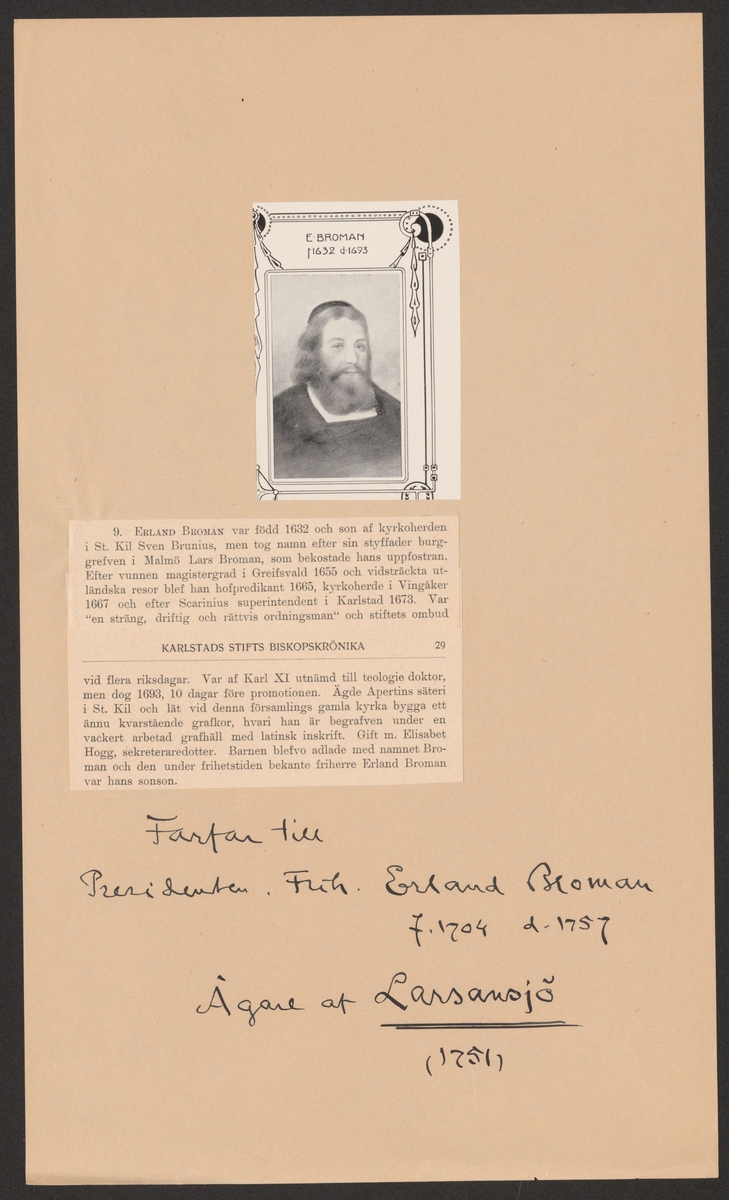 E·BROMAN
f1632 d·1693
9. ERLAND BROMAN var född 1632 och son af kyrkoherden
i St. Kil Sven Brunius, men tog namn efter sin styffader burg-
grefven i Malmö Lars Broman, som bekostade hans uppfostran.
Efter vunnen magistergrad i Greifsvald 1655 och vidsträckta ut-
ländska resor blef han hofpredikant 1665, kyrkoherde i Vingåker
1667 och efter Scarinius superintendent i Karlstad 1673. Var
“en sträng, driftig och rättvis ordningsman“ och stiftets ombud
KARLSTADS STIFTS BISKOPSKRÖNIKA 29
vid flera riksdagar. Var af Karl XI utnämd till teologie doktor,
men dog 1693, 10 dagar före promotionen. Ägde Apertins säteri
i St. Kil och lät vid denna församlings gamla kyrka bygga ett
ännu kvarstående grafkor, hvari han är begrafven under en
vackert arbetad grafhäll med latinsk inskrift. Gift m. Elisabet
Hogg, sekreteraredotter. Barnen blefvo adlade med namnet Bro-
man och den under frihetstiden bekante friherre Erland Broman
var hans sonson.
Farfar till
Presidenten. Frih. Erland Broman
f.1704 d-1757
Ägare af Larsansjö
(1751)